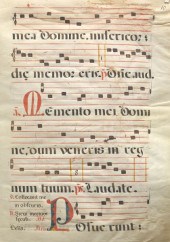 mea Domine, misericor:
dię memor eris. ps. Que.aud.
Memento mei Domi
ne, dum veneris in reg
num tuum. ps. Laudate.
Posue runt: